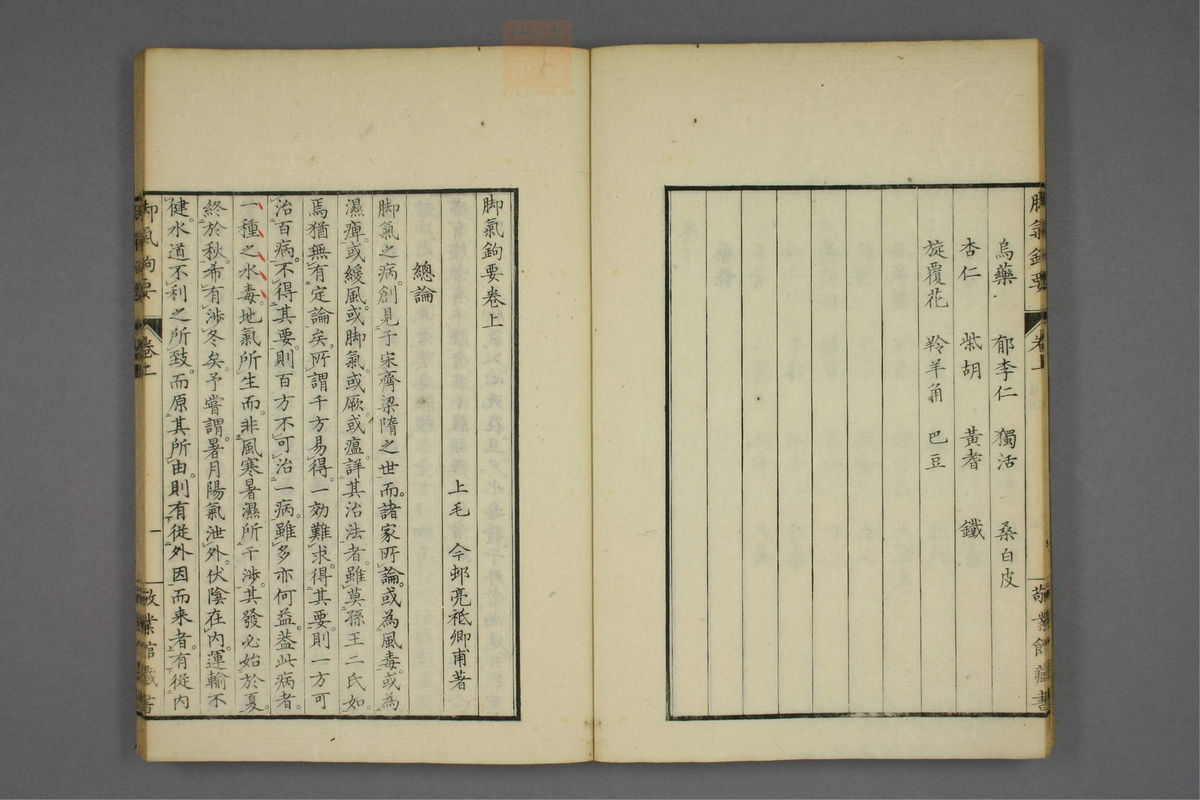 脚氣鉤要 卷上 敬業館藏書
烏藥 郁李仁 獨活 桑白皮
杏仁 柴胡 黃耆 鐵
旋覆花 羚羊角 巴豆
脚氣鉤要卷上
上毛 今邨亮祗卿甫著
總論
脚氣之病。創見于宋齊梁隋之世。而諸家所論。或為風毒。或為
濕痺。或緩風。或脚氣。或厥。或瘟。詳其治法者。雖莫孫王二氏如
焉。猶無有定論矣。所謂千方易得。一効難求。得其要則一方可
治百病。不得其要。則百方不可治一病。雖多亦何益。蓋此病者。
一種之水毒。地氣所生。而非風寒暑濕所干涉。其發必始於夏。
終於秋。希有涉冬矣。予嘗謂。暑月陽氣泄外。伏陰在内。運輸不
健。水道不利之所致。而原其所由。則有從外因而来者。有從内
脚氣鉤要 卷上 一 敬業館藏書